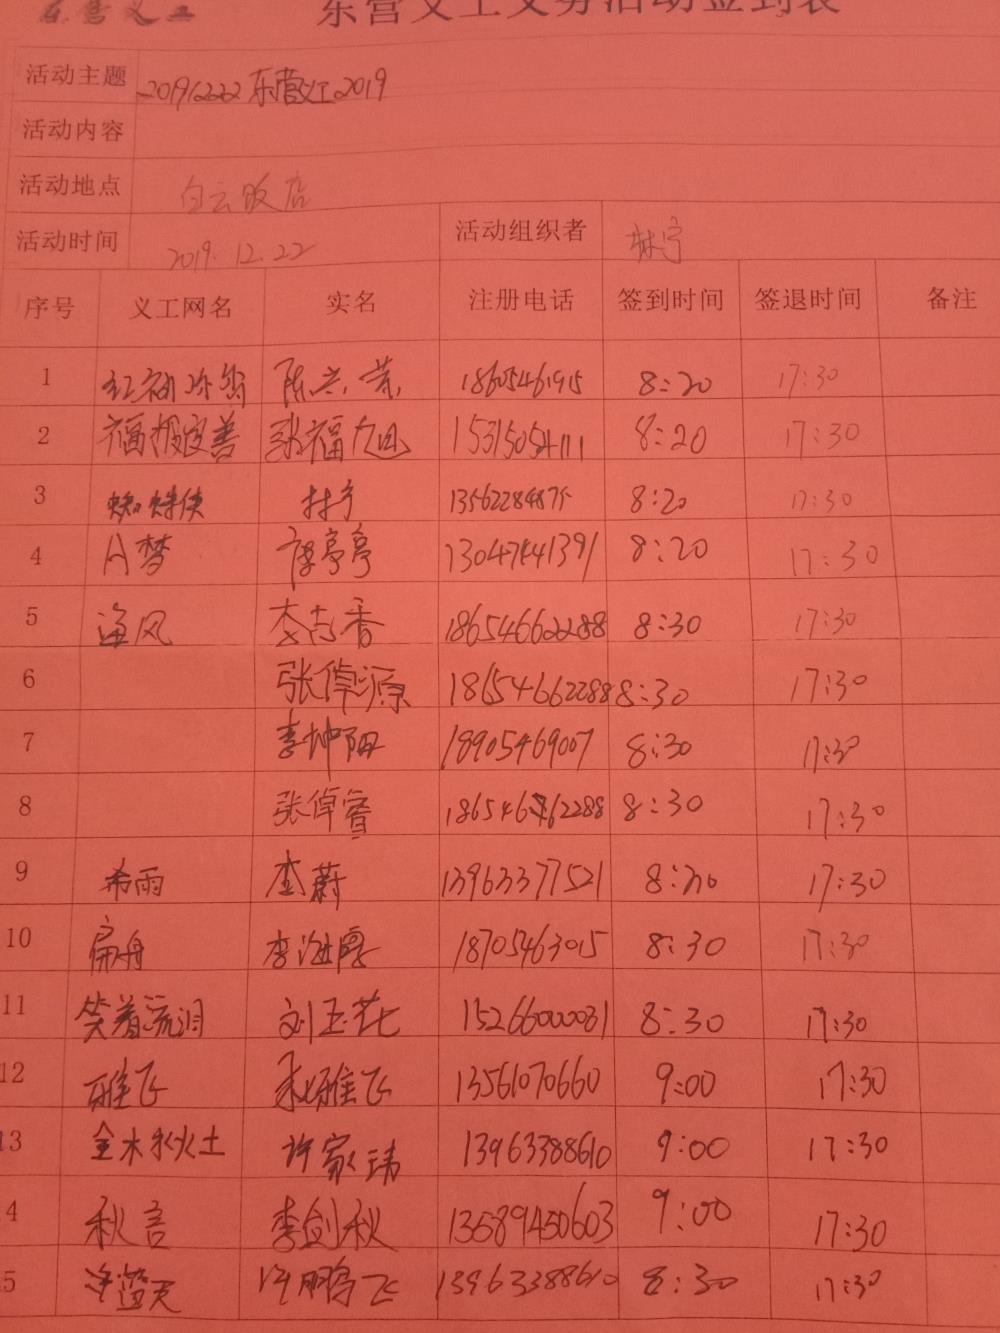 东营义工 东营义工义务活动签到表
活动主题 20191222东营义工2019
活动内容
活动地点 白云饭店
活动时间 2019.12.22 活动组织者 林宁
序号 义工网名 实名 注册电话 签到时间 签退时间 备注
1 18605461915 8:20 17:30
2 福报宝善 15315054111 8:20 17:30
3 蜘蛛侠 林宁 13562284875 8:20 17:30
4 月梦 亭亭 13047441391 8:20 17:30
5 海风 李志香 18654662288 8:30 17:30
6 张倬源 18654662288 8:30 17:30
7 李坤阳 18905469007 8:30 17:30
8 张倬睿 18654662288 8:30 17:30
9 希雨 李蔚 13963377521 8:30 17:30
10 扁舟 李海 18705463015 8:30 17:30
11 笑着流泪 刘玉花 15266000031 8:30 17:30
12 雅飞 雅飞 13561070660 9:00 17:30
13 金木秋火土 许家玮 13963388610 9:00 17:30
4 秋言 李剑秋 13589450603 9:00 17:30
5 蓝天 许鹏飞 13963388610 8:30 17:30